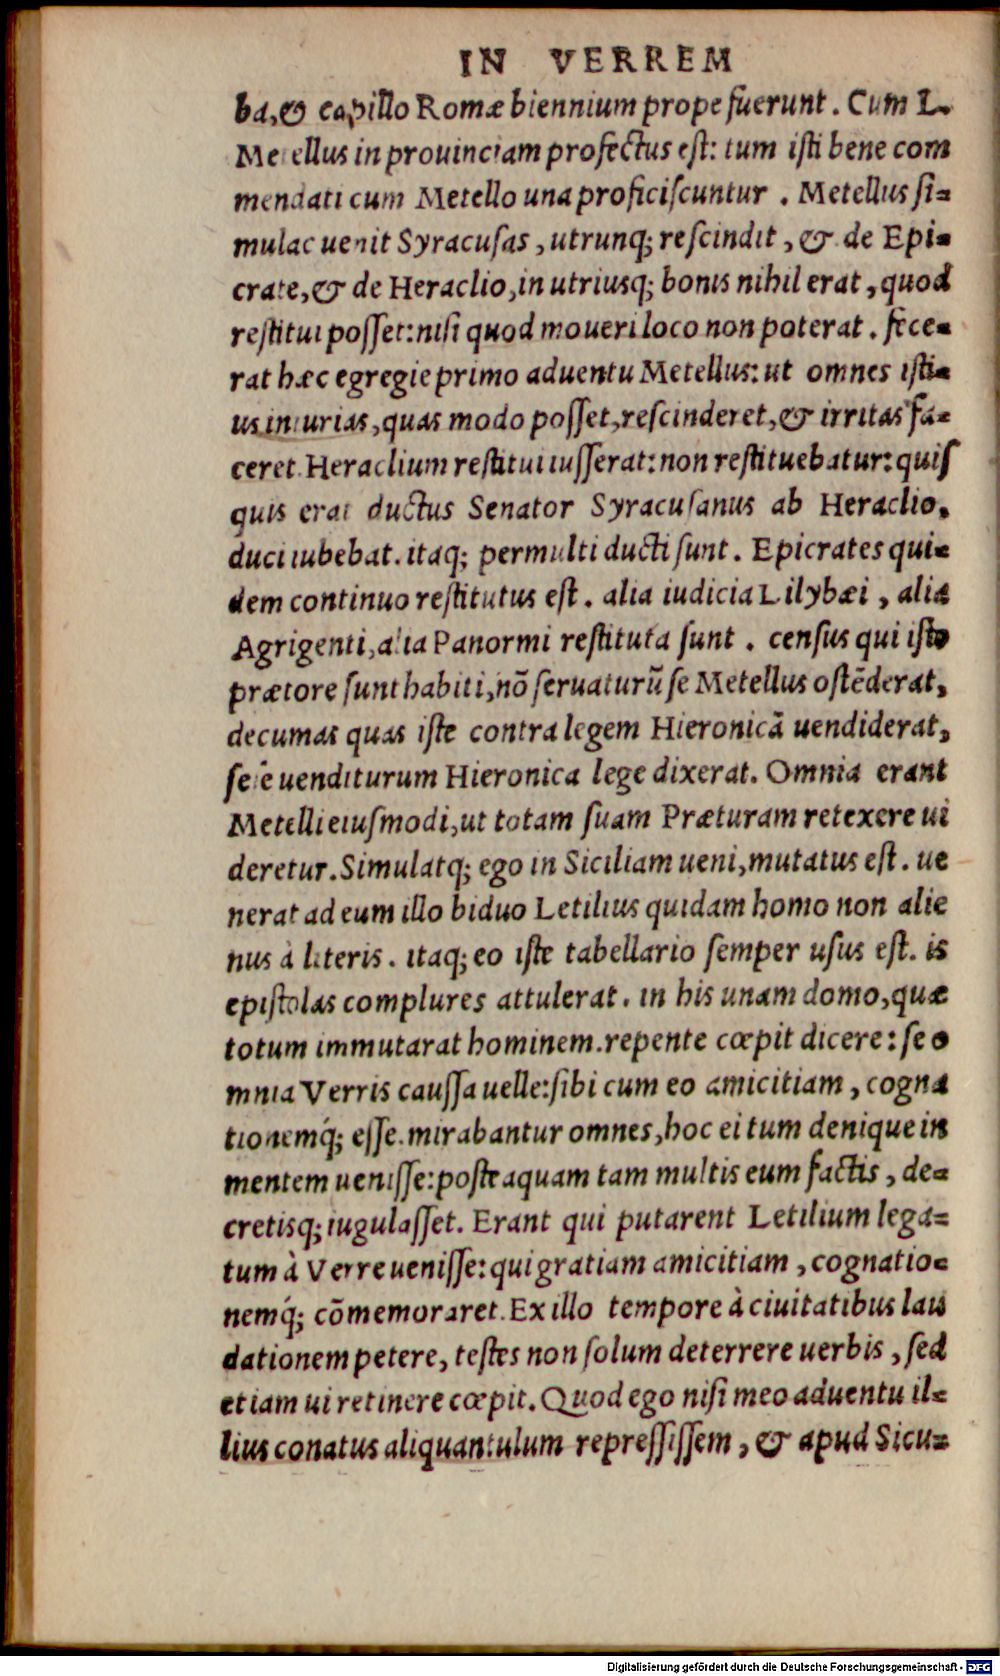 IN VERREM
ba, & capillo Romæ biennium prope fuerunt. Cum L.
Metellus in prouinciam profectus est: tum isti bene com
mendati cum Metello una proficiscuntur. Metellus si=
mulac uenit Syracusas, utrunq; rescindit, & de Epi=
crate, & de Heraclio, in utriusq; bonis nihil erat, quod
restitui posset: nisi quod moueri loco non poterat. fece=
rat hæc egregie primo aduentu Metellus: ut omnes isti=
us iniurias, quas modo posset, rescinderet, & irritas fa=
ceret. Heraclium restitui iusserat: non restituebatur: quis
quis erat ductus Senator Syracusanus ab Heraclio,
duci iubebat. itaq; permulti ducti sunt. Epicrates qui=
dem continuo restitutus est. alia iudicia Lilybæi, alia
Agrigenti, alia Panormi restituta sunt. census qui isto
prætore sunt habiti, nō seruaturū se Metellus ostēderat,
decumas quas iste contra legem Hieronicā uendiderat,
sese uenditurum Hieronica lege dixerat. Omnia erant
Metelli eiusmodi, ut totam suam Præturam retexere ui
deretur. Simulatq; ego in Siciliam ueni, mutatus est. ue
nerat ad eum illo biduo Letilius quidam homo non alie
nus à literis. itaq; eo iste tabellario semper usus est. is
epistolas complures attulerat. in his unam domo, quæ
totum immutarat hominem. repente cœpit dicere: se o
mnia Verris caussa uelle: sibi cum eo amicitiam, cogna
tionemq́; esse. mirabantur omnes, hoc ei tum denique in
mentem uenisse: posteaquam tam multis eum factis, de=
cretisq; iugulasset. Erant qui putarent Letilium lega=
tum à Verre uenisse: qui gratiam amicitiam, cognatio=
nemq́; cōmemoraret. Ex illo tempore à ciuitatibus lau
dationem petere, testes non solum deterrere uerbis, sed
etiam ui retinere cœpit. Quod ego nisi meo aduentu il=
lius conatus aliquantulum repressissem, & apud Sicu=
Digitalisierung gefördert durch die Deutsche Forschungsgemeinschaft - DFG